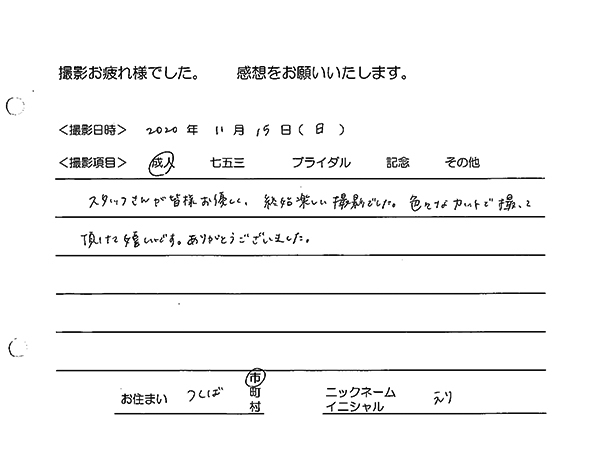 撮影お疲れ様でした。　感想をお願いいたします。
<撮影日時> 2020 年 11 月 15 日 ( 日 )
<撮影項目> 成人 七五三 ブライダル 記念 その他
スタッフさんが皆様お優しく、終始楽しい撮影でした。色々なカットで撮って
頂けて嬉しいです。ありがとうございました。
お住まい つくば 市 町 村 ニックネーム イニシャル えり